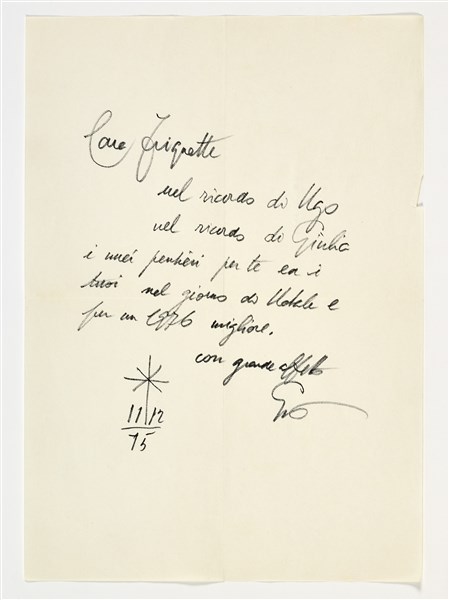 Cara Frignette
nel ricordo di Ugo
nel ricordo di Giulia
i miei pensieri per te ed i
tuoi nel giorno di Natale e
per un 1976 migliore.
con grande affetto
11 12
75